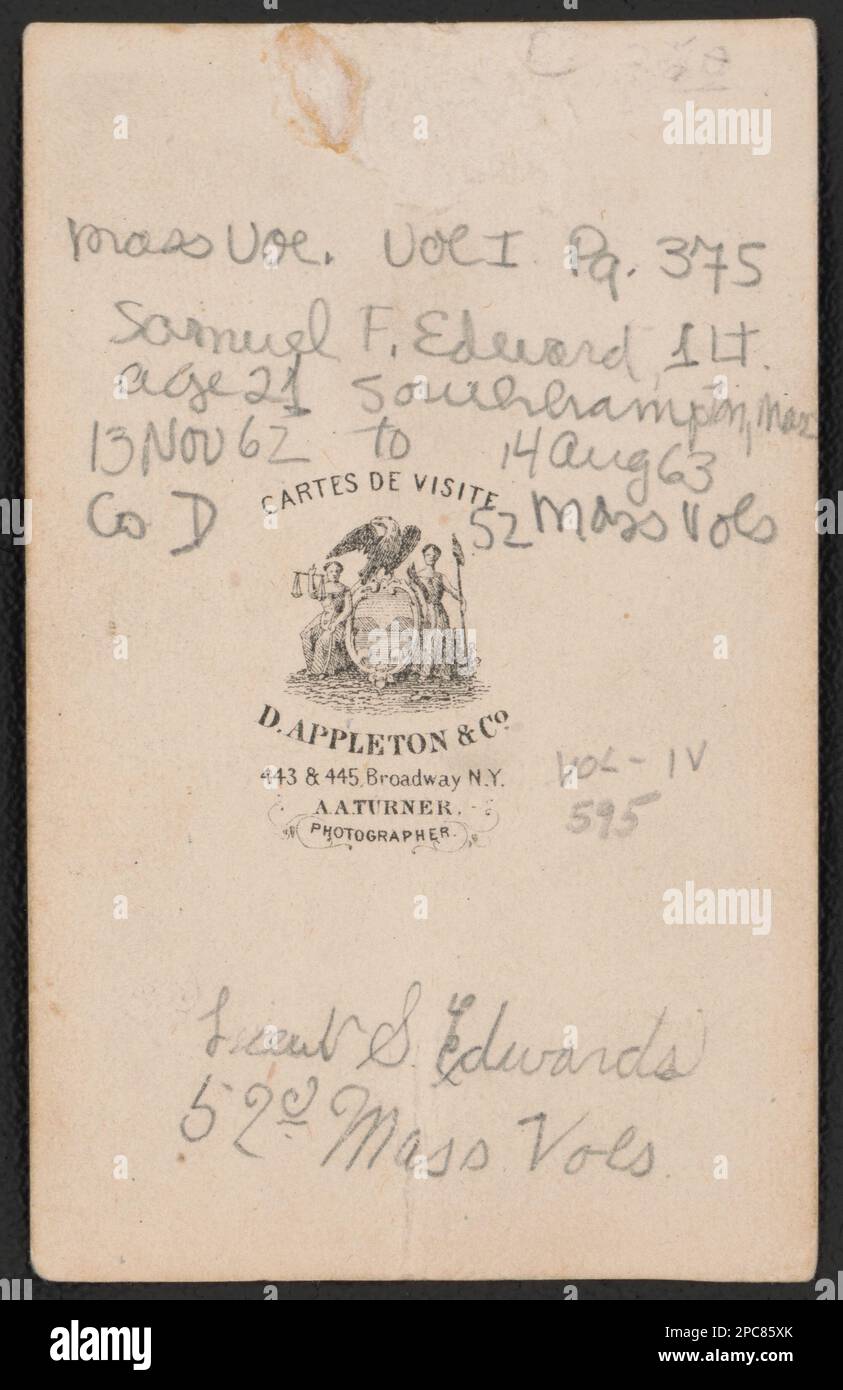 Mass Vol. Vol I Pg. 375
Samuel F. Edward, 1 Lt.
age 21 Southhampton, Mas
13 Nov 62 to 14 Aug 63
CARTES DE VISITE
Co D 52 Mass Vols
D. APPLETON & Co
443 & 445, Broadway N.Y.
A.A. TURNER.
PHOTOGRAPHER.
VOL - IV
595
Lieut S. Edwards
52d Mass Vols
a
alamy
Image ID: 2PC85XK
www.alamy.com